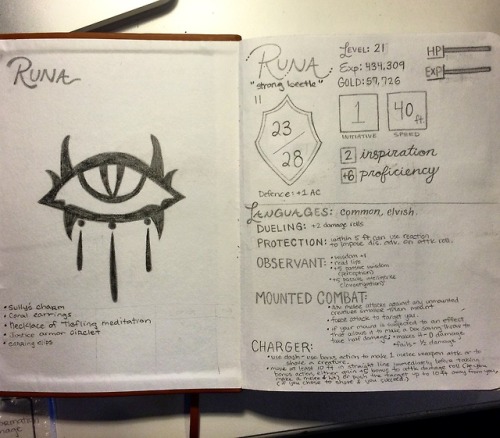 RUNA
• Sully's charm
• Coral earrings
• Necklace of Tiefling meditation
• armor circlet
RUNA
"strong beetle"
11
LEVEL: 21
Exp: 434,309
GOLD: 57,726
HP
EXP
23
28
1
INITIATIVE
40 ft
SPEED
2 inspiration
+6 proficiency
Defence: +1 AC
LANGUAGES: common, elvish
DUELING: +2 damage rolls
PROTECTION: within 5 ft can use reaction
to impose dis. adv. on attk roll.
OBSERVANT: • wisdom +1
• read lips
• +5 passive wisdom
(perception)
• +5 passive intelligence
(investigation)
MOUNTED COMBAT:
• Adv melee attacks against any unmounted
creature smaller than mount
• force attack to target you.
• if your mount is subjected to an effect
that allows it to make a Dex saving throw to
take half damage, • makes it = 0 damage
• fails = ½ damage
CHARGER:
• use dash - use bonus action to make 1 melee weapon attk or to
shove a creature.
• move at least 10 ft in straight line immediately before taking
bonus action either gain +5 bonus to attk damage roll (if you
make a melee & hit) or push the target up to 10 ft away from you
(if you chose to shove & you succeed)